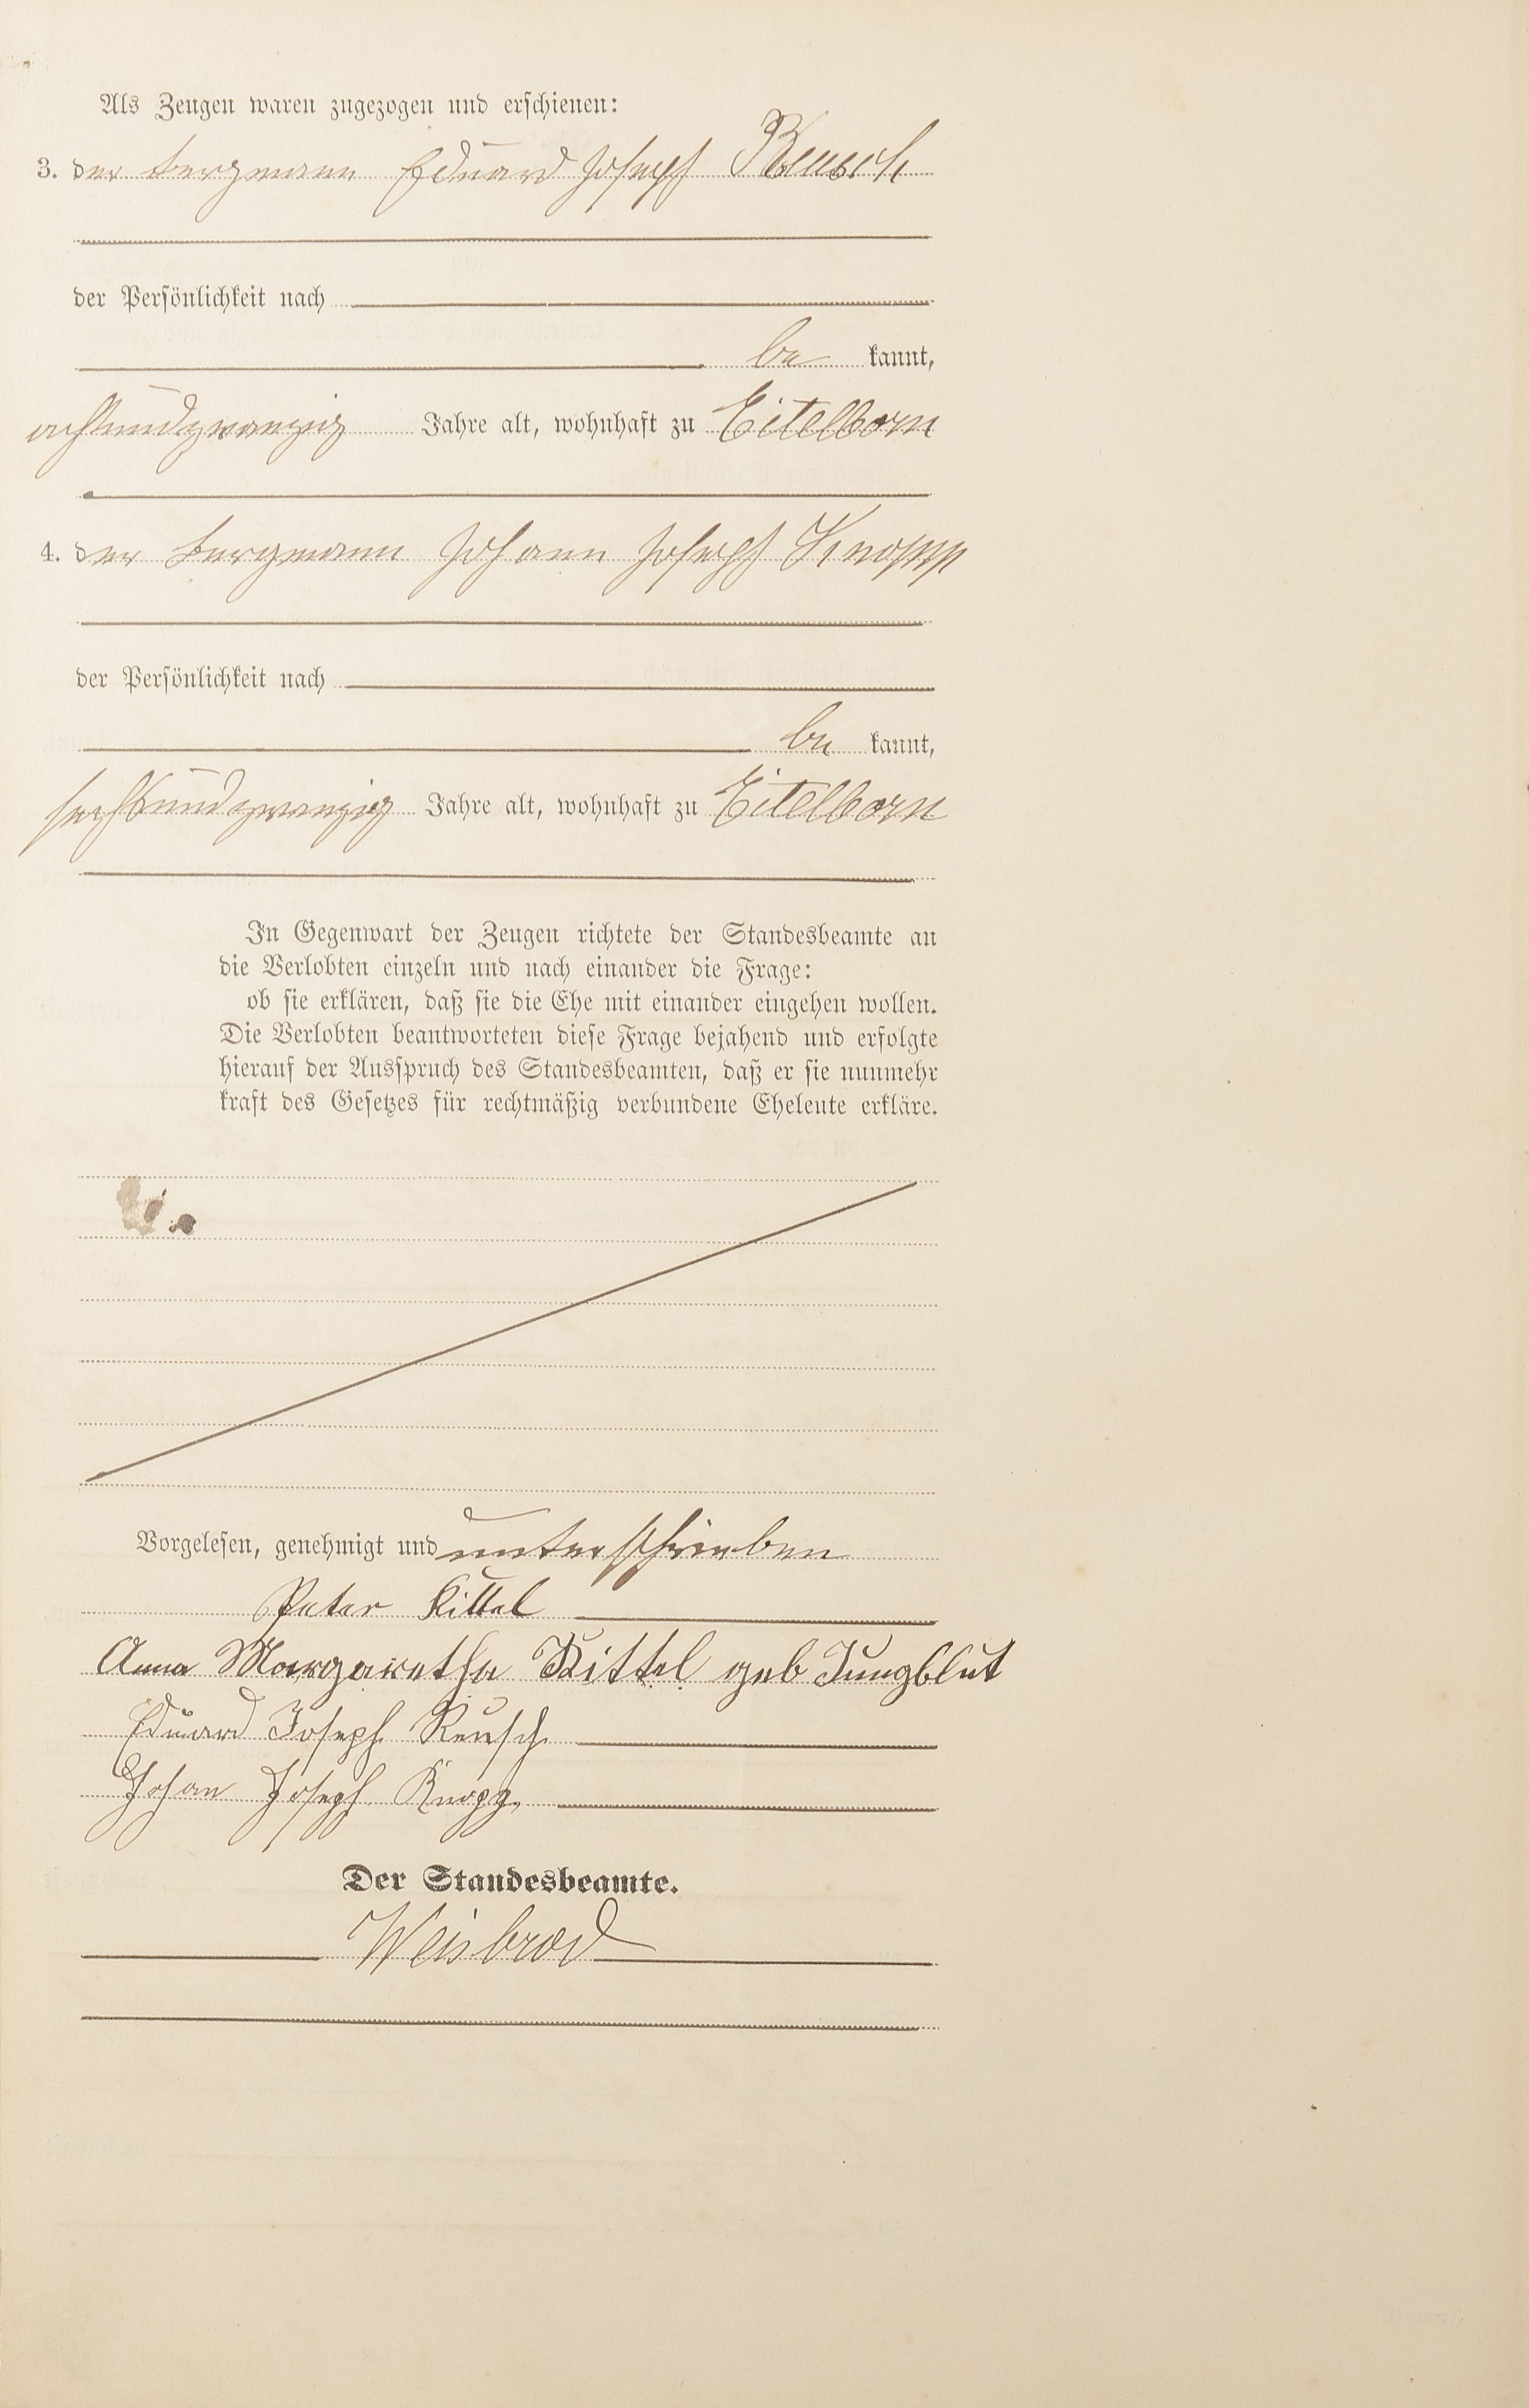 Als Zeugen waren zugezogen und erschienen:
3. der Bergmann Eduard Joseph Reusch
der Persönlichkeit nach
be kannt,
achtundzwanzig Jahre alt, wohnhaft zu Eitelborn
4. der Bergmann Johann Joseph Knopp
der Persönlichkeit nach
be kannt,
sechsundzwanzig Jahre alt, wohnhaft zu Eitelborn
In Gegenwart der Zeugen richtete der Standesbeamte an
die Verlobten einzeln und nach einander die Frage:
ob sie erklären, daß sie die Ehe mit einander eingehen wollen.
Die Verlobten beantworteten diese Frage bejahend und erfolgte
hierauf der Ausspruch des Standesbeamten, daß er sie nunmehr
kraft des Gesetzes für rechtmäßig verbundene Eheleute erkläre.
Vorgelesen, genehmigt und unterschrieben
Peter Kittel
Anna Margaretha Kittel geb Jungblut
Eduard Joseph Reusch
Johan Joseph Knopp
Der Standesbeamte.
Weisbrod